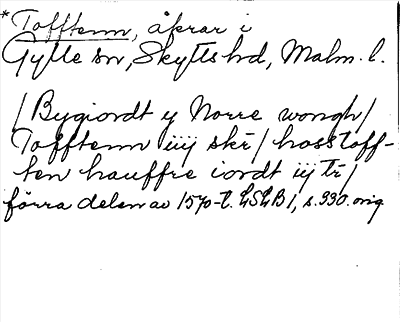 *Tofftenn, åkrar i
Gylle sn, Skytts hd, Malm. l.
/Bygiordt y Norre wongh/
Tofftenn iiij skr/ hosstoff-
ten hauffre iordt iij tr/
förra delen av 1570-t. LSLB 1, s. 330. orig